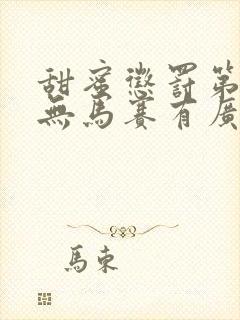 甜蜜懲罰第
無馬賽有廣
馬東